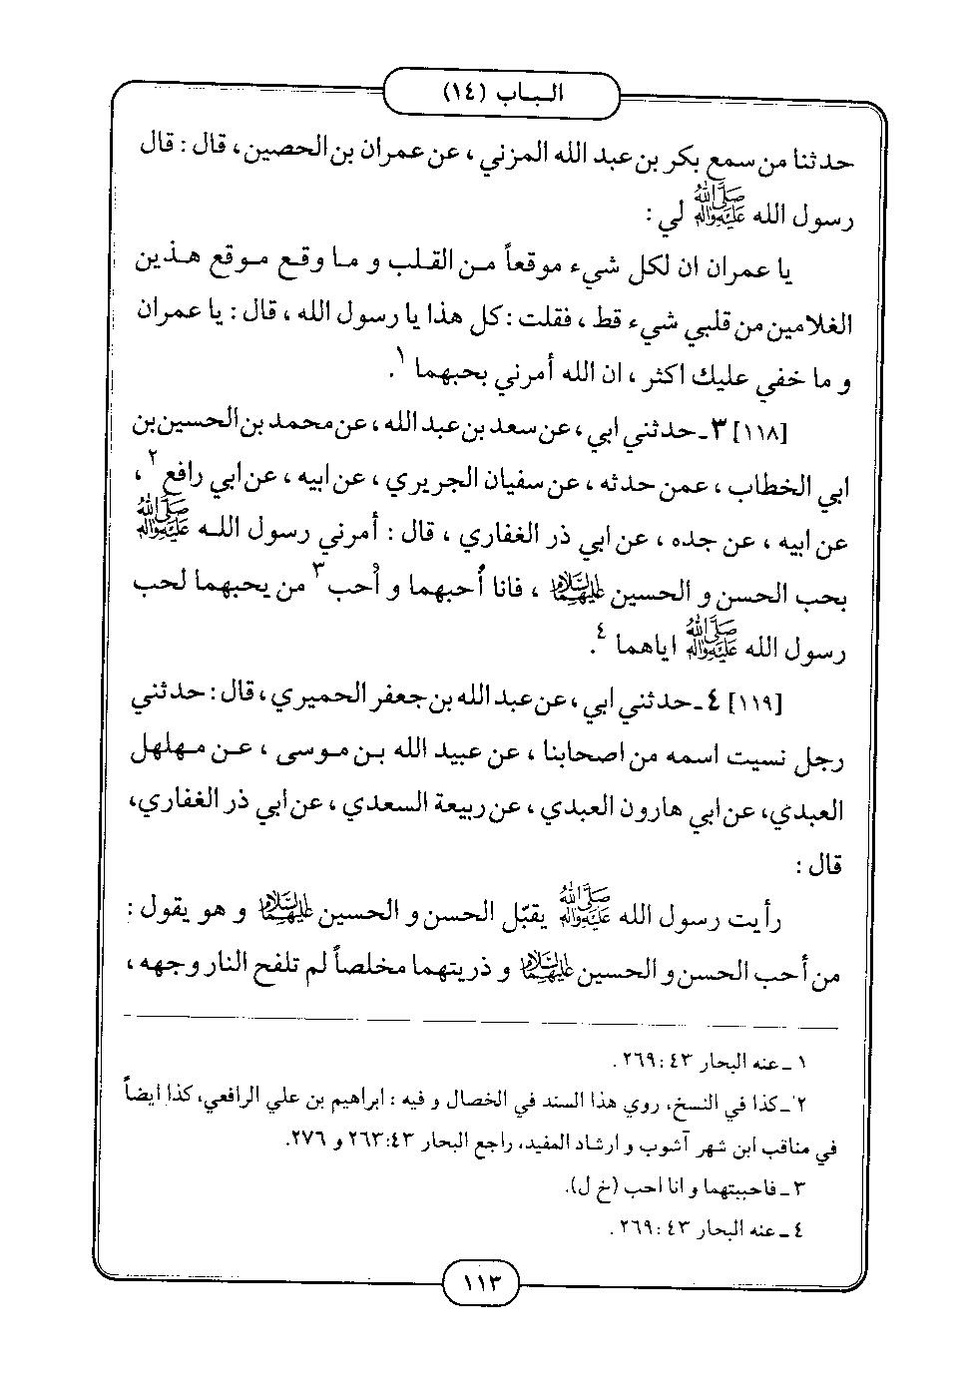 الـبـاب (١٤)
حدثنا من سمع بكر بن عبد الله المزني ، عن عمران بن الحصين ، قال : قال
رسول الله صَلَّى اللهُ عَلَيْهِ وَآلِهِ لي :
يا عمران ان لكل شيء موقعاً من القلب و ما وقع موقع هذين
الغلامين من قلبي شيء قط ، فقلت : كل هذا يا رسول الله ، قال : يا عمران
و ما خفي عليك اكثر ، ان الله أمرني بحبهما ١.
[١١٨] ٣ ـ حدثني ابي ، عن سعد بن عبد الله ، عن محمد بن الحسين بن
ابي الخطاب ، عمن حدثه ، عن سفيان الجريري ، عن ابيه ، عن ابي رافع ٢ ،
عن ابيه ، عن جده ، عن ابي ذر الغفاري ، قال : أمرني رسول الله صَلَّى اللهُ عَلَيْهِ وَآلِهِ
بحب الحسن و الحسين عَلَيْهِمَا السَّلَام ، فانا اُحبهما و اُحب ٣ من يحبهما لحب
رسول الله صَلَّى اللهُ عَلَيْهِ وَآلِهِ اياهما ٤.
[١١٩] ٤ ـ حدثني ابي ، عن عبد الله بن جعفر الحميري ، قال : حدثني
رجل نسيت اسمه من اصحابنا ، عن عبيد الله بن موسى ، عن مهلهل
العبدي، عن ابي هارون العبدي ، عن ربيعة السعدي ، عن ابي ذر الغفاري،
قال :
رأيت رسول الله صَلَّى اللهُ عَلَيْهِ وَآلِهِ يقبّل الحسن و الحسين عَلَيْهِمَا السَّلَام و هو يقول :
من أحب الحسن و الحسين عَلَيْهِمَا السَّلَام و ذريتهما مخلصاً لم تلفح النار وجهه ،
١ ـ عنه البحار ٤٣ : ٢٦٩ .
٢ ـ كذا في النسخ، روي هذا السند في الخصال و فيه : ابراهيم بن علي الرافعي، كذا ايضاً
في مناقب ابن شهر آشوب و ارشاد المفيد، راجع البحار ٤٣:٢٦٣ و ٢٧٦.
٣ ـ فاحببتهما و انا احب (خ ل).
٤ ـ عنه البحار ٤٣ : ٢٦٩ .
١١٣